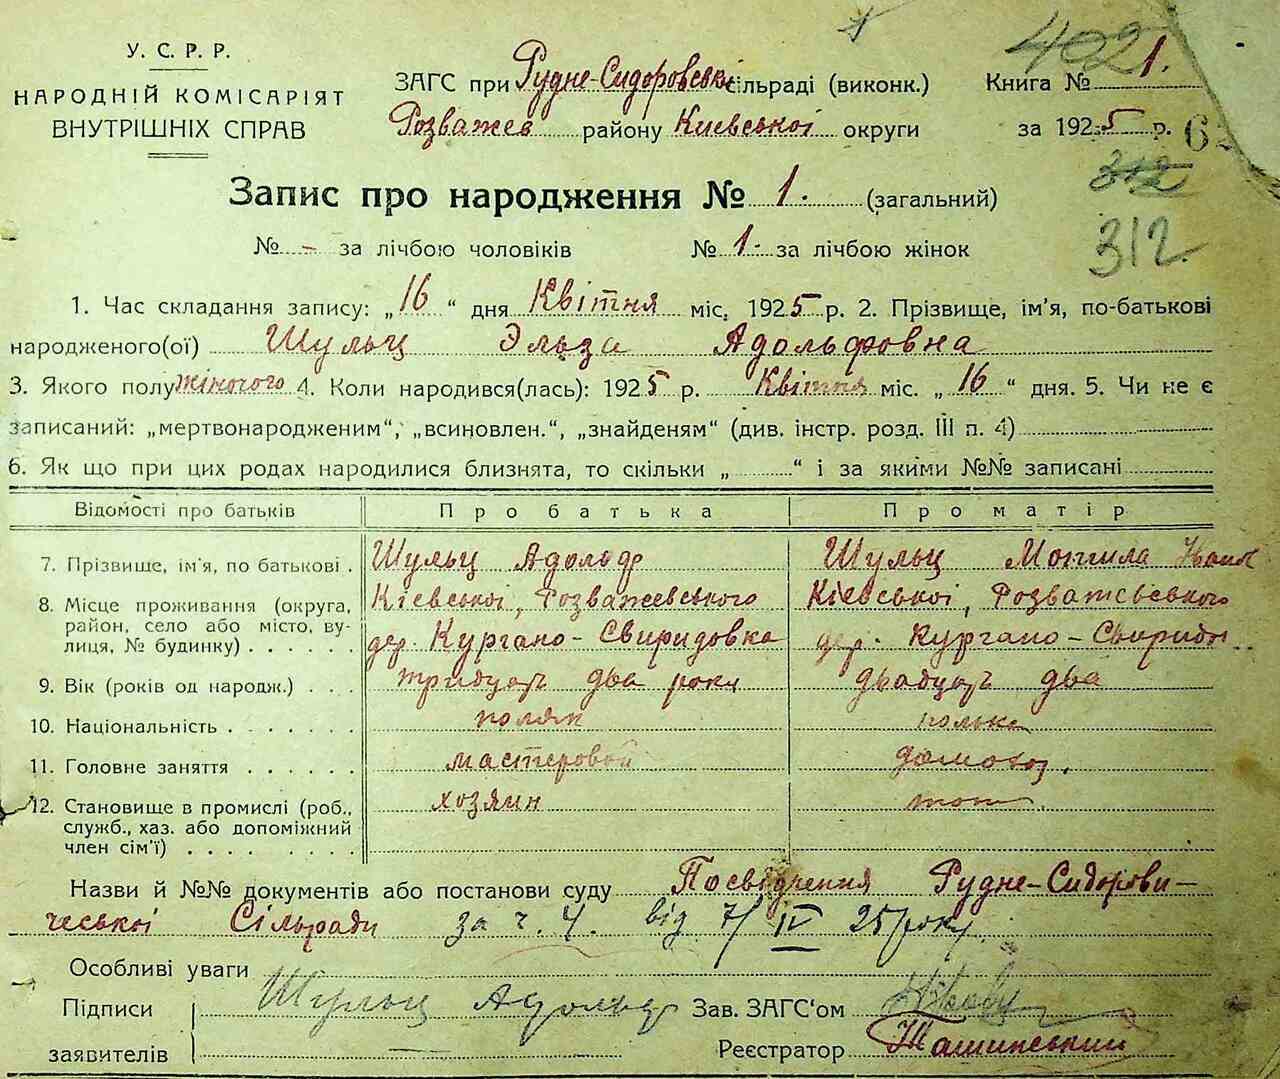 У. С. Р. Р.
НАРОДНІЙ КОМІСАРІЯТ
ВНУТРІШНІХ СПРАВ
ЗАГС при Рудне-Сидоровськ сільраді (виконк.)
Розважев району Киевської округи
402
Книга № 1.
за 1925 р.
6
312
312
Запис про народження № 1. (загальний)
№ - за лічбою чоловіків № 1. за лічбою жінок
1. Час складання запису: „16“ дня Квітня міс. 1925 р. 2. Прізвище, ім'я, по-батькові
народженого(ої) Шульц Эльза Адольфовна
3. Якого полу жіночого 4. Коли народився(лась): 1925 р. Квітня міс. „16“ дня. 5. Чи не є
записаний: „мертвонародженим“, „всиновлен.“, „знайденям“ (див. інстр. розд. III п. 4)
6. Як що при цих родах народилися близнята, то скільки „ “ і за якими №№ записані
Відомості про батьків Про батька Про матір
7. Прізвище, ім'я, по батькові . Шульц Адольф Шульц
8. Місце проживання (округа, Кіевської, Розважевського Кіевської, Розважевського
район, село або місто, ву- дер. Кургано-Свиридовка дер. Кургано-Свиридо
лиця, № будинку) . . . . . .
9. Вік (років од народж.) . . . тридцать два роки двадцать два
10. Національність . . . . . . . поляк полька
11. Головне заняття . . . . . . мастеровой домохоз.
12. Становище в промислі (роб., хозяин
служб., хаз. або допоміжний
член сім'ї) . . . . . . . . .
Назви й №№ документів або постанови суду Посвідчення Рудне-Сидорови-
чеської Сільради за ч. 4. від 7/IV 25 року.
Особливі уваги
Підписи Шульц Адольф Зав. ЗАГС'ом
заявителів Реєстратор